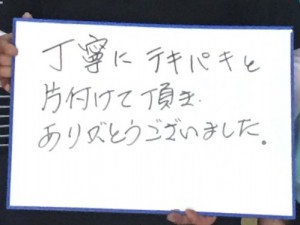 丁寧に テキパキと
片付けて頂き
ありがとうございました。